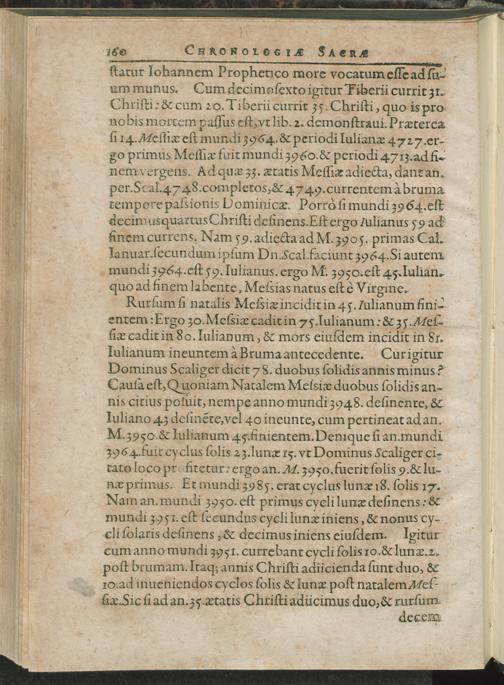 160 CHRONOLOGIÆ SACRÆ
statur Iohannem Prophetico more vocatum esse ad su-
um munus. Cum decimosexto igitur Tiberii currit 31.
Christi: & cum 20. Tiberii currit 35. Christi, quo is pro
nobis mortem passus est, vt lib. 2. demonstraui. Præterea
si 14. Messiæ est mundi 3964. & periodi Iulianæ 4727. er-
go primus Messiæ fuit mundi 3960. & periodi 4713. ad fi-
nem vergens. Ad quæ 33. ætatis Messiæ adiecta, dant an.
per. Scal. 4748. completos, & 4749. currentem à bruma
tempore passionis Dominicæ. Porrò si mundi 3964. est
decimusquartus Christi desinens. Est ergo Iulianus 59 ad
finem currens. Nam 59. adiecta ad M. 3905. primas Cal.
Ianuar. secundum ipsum Dn. Scal. faciunt 3964. Si autem
mundi 3964. est 59. Iulianus. ergo M. 3950. est 45. Iulian.
quo ad finem labente, Messias natus est è Virgine.
Rursum si natalis Messiæ incidit in 45. Iulianum fini-
entem: Ergo 30. Messiæ cadit in 75. Iulianum: & 35. Mes-
siæ cadit in 80. Iulianum, & mors eiusdem incidit in 81.
Iulianum ineuntem à Bruma antecedente. Cur igitur
Dominus Scaliger dicit 78. duobus solidis annis minus?
Causa est, Quoniam Natalem Messiæ duobus solidis an-
nis citius posuit, nempe anno mundi 3948. desinente, &
Iuliano 43 desinẽte, vel 40 ineunte, cum pertineat ad an.
M. 3950. & Iulianum 45. finientem. Denique si an. mundi
3964. fuit cyclus solis 23. lunæ 15. vt Dominus Scaliger ci-
tato loco profitetur: ergo an. M. 3950. fuerit solis 9. & lu-
næ primus. Et mundi 3985. erat cyclus lunæ 18. solis 17.
Nam an. mundi 3950. est primus cycli lunæ desinens: &
mundi 3951. est secundus cycli lunæ iniens, & nonus cy-
cli solaris desinens, & decimus iniens eiusdem. Igitur
cum anno mundi 3951. currebant cycli solis 10. & lunæ. 2.
post brumam. Itaq; annis Christi adiicienda sunt duo, &
10. ad inueniendos cyclos solis & lunæ post natalem Mes-
siæ. Sic si ad an. 35. ætatis Christi adiicimus duo, & rursum
decem